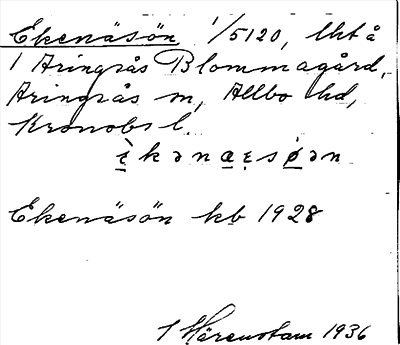 Ekenäsön 1/5120, lht å
1 Aringsås Blommagård,
Aringsås sn, Allbo hd,
Kronobs l.
èkənæsøən
Ekenäsön kb 1928
1936